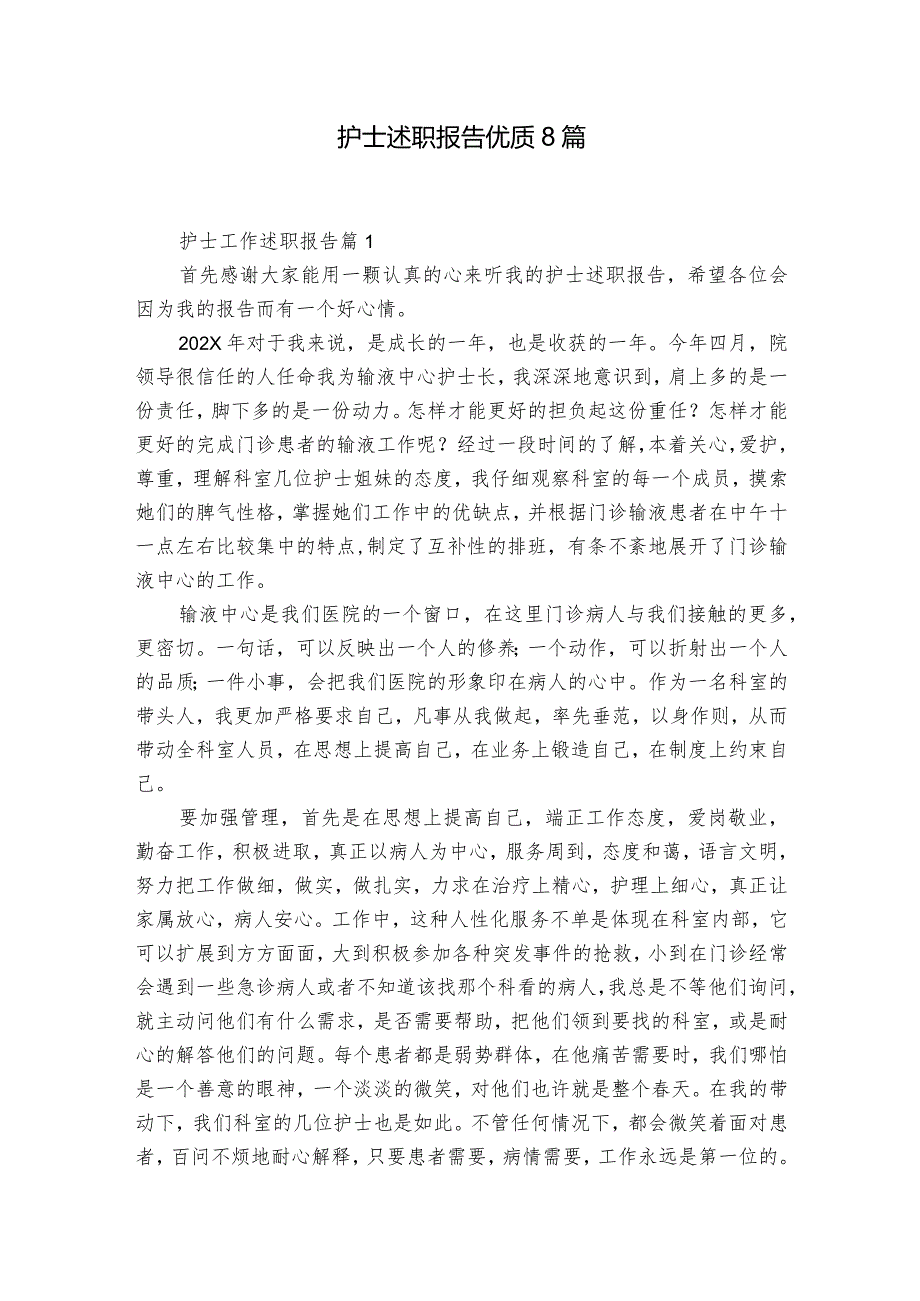 护士述职报告优质8篇
护士工作述职报告篇1
首先感谢大家能用一颗认真的心来听我的护士述职报告，希望各位会
因为我的报告而有一个好心情。
202X年对于我来说，是成长的一年，也是收获的一年。今年四月，院
领导很信任的人任命我为输液中心护士长，我深深地意识到，肩上多的是一
份责任，脚下多的是一份动力。怎样才能更好的担负起这份重任？怎样才能
更好的完成门诊患者的输液工作呢？经过一段时间的了解，本着关心，爱护，
尊重，理解科室几位护士姐妹的态度，我仔细观察科室的每一个成员，摸索
她们的脾气性格，掌握她们工作中的优缺点，并根据门诊输液患者在中午十
一点左右比较集中的特点，制定了互补性的排班，有条不紊地展开了门诊输
液中心的工作。
输液中心是我们医院的一个窗口，在这里门诊病人与我们接触的更多，
更密切。一句话，可以反映出一个人的修养；一个动作，可以折射出一个人
的品质；一件小事，会把我们医院的形象印在病人的心中。作为一名科室的
带头人，我更加严格要求自己，凡事从我做起，率先垂范，以身作则，从而
带动全科室人员，在思想上提高自己，在业务上锻造自己，在制度上约束自
己。
要加强管理，首先是在思想上提高自己，端正工作态度，爱岗敬业，
勤奋工作，积极进取，真正以病人为中心，服务周到，态度和蔼，语言文明，
努力把工作做细，做实，做扎实，力求在治疗上精心，护理上细心，真正让
家属放心，病人安心。工作中，这种人性化服务不单是体现在科室内部，它
可以扩展到方方面面，大到积极参加各种突发事件的抢救，小到在门诊经常
会遇到一些急诊病人或者不知道该找那个科看的病人，我总是不等他们询问，
就主动问他们有什么需求，是否需要帮助，把他们领到要找的科室，或是耐
心的解答他们的问题。每个患者都是弱势群体，在他痛苦需要时，我们哪怕
是一个善意的眼神，一个淡淡的微笑，对他们也许就是整个春天。在我的带
动下，我们科室的几位护士也是如此。不管任何情况下，都会微笑着面对患
者，百问不烦地耐心解释，只要患者需要，病情需要，工作永远是第一位的。